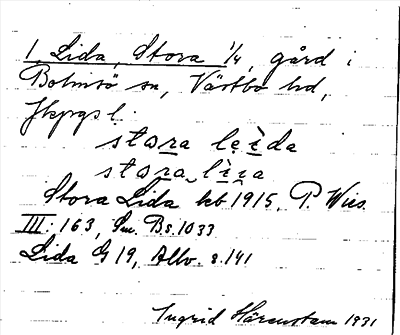 1 Lida, Stora 1/4, gård i
Bolmsö sn, Västbo hd,
Jkpgs l.
stora lẹìda
stora lìza
Stora Lida kb 1915, P. Wies.
III: 163, Sm. Bs. 1033
Lida G 19, Allv. s. 141
Ingrid Härenstam 1931